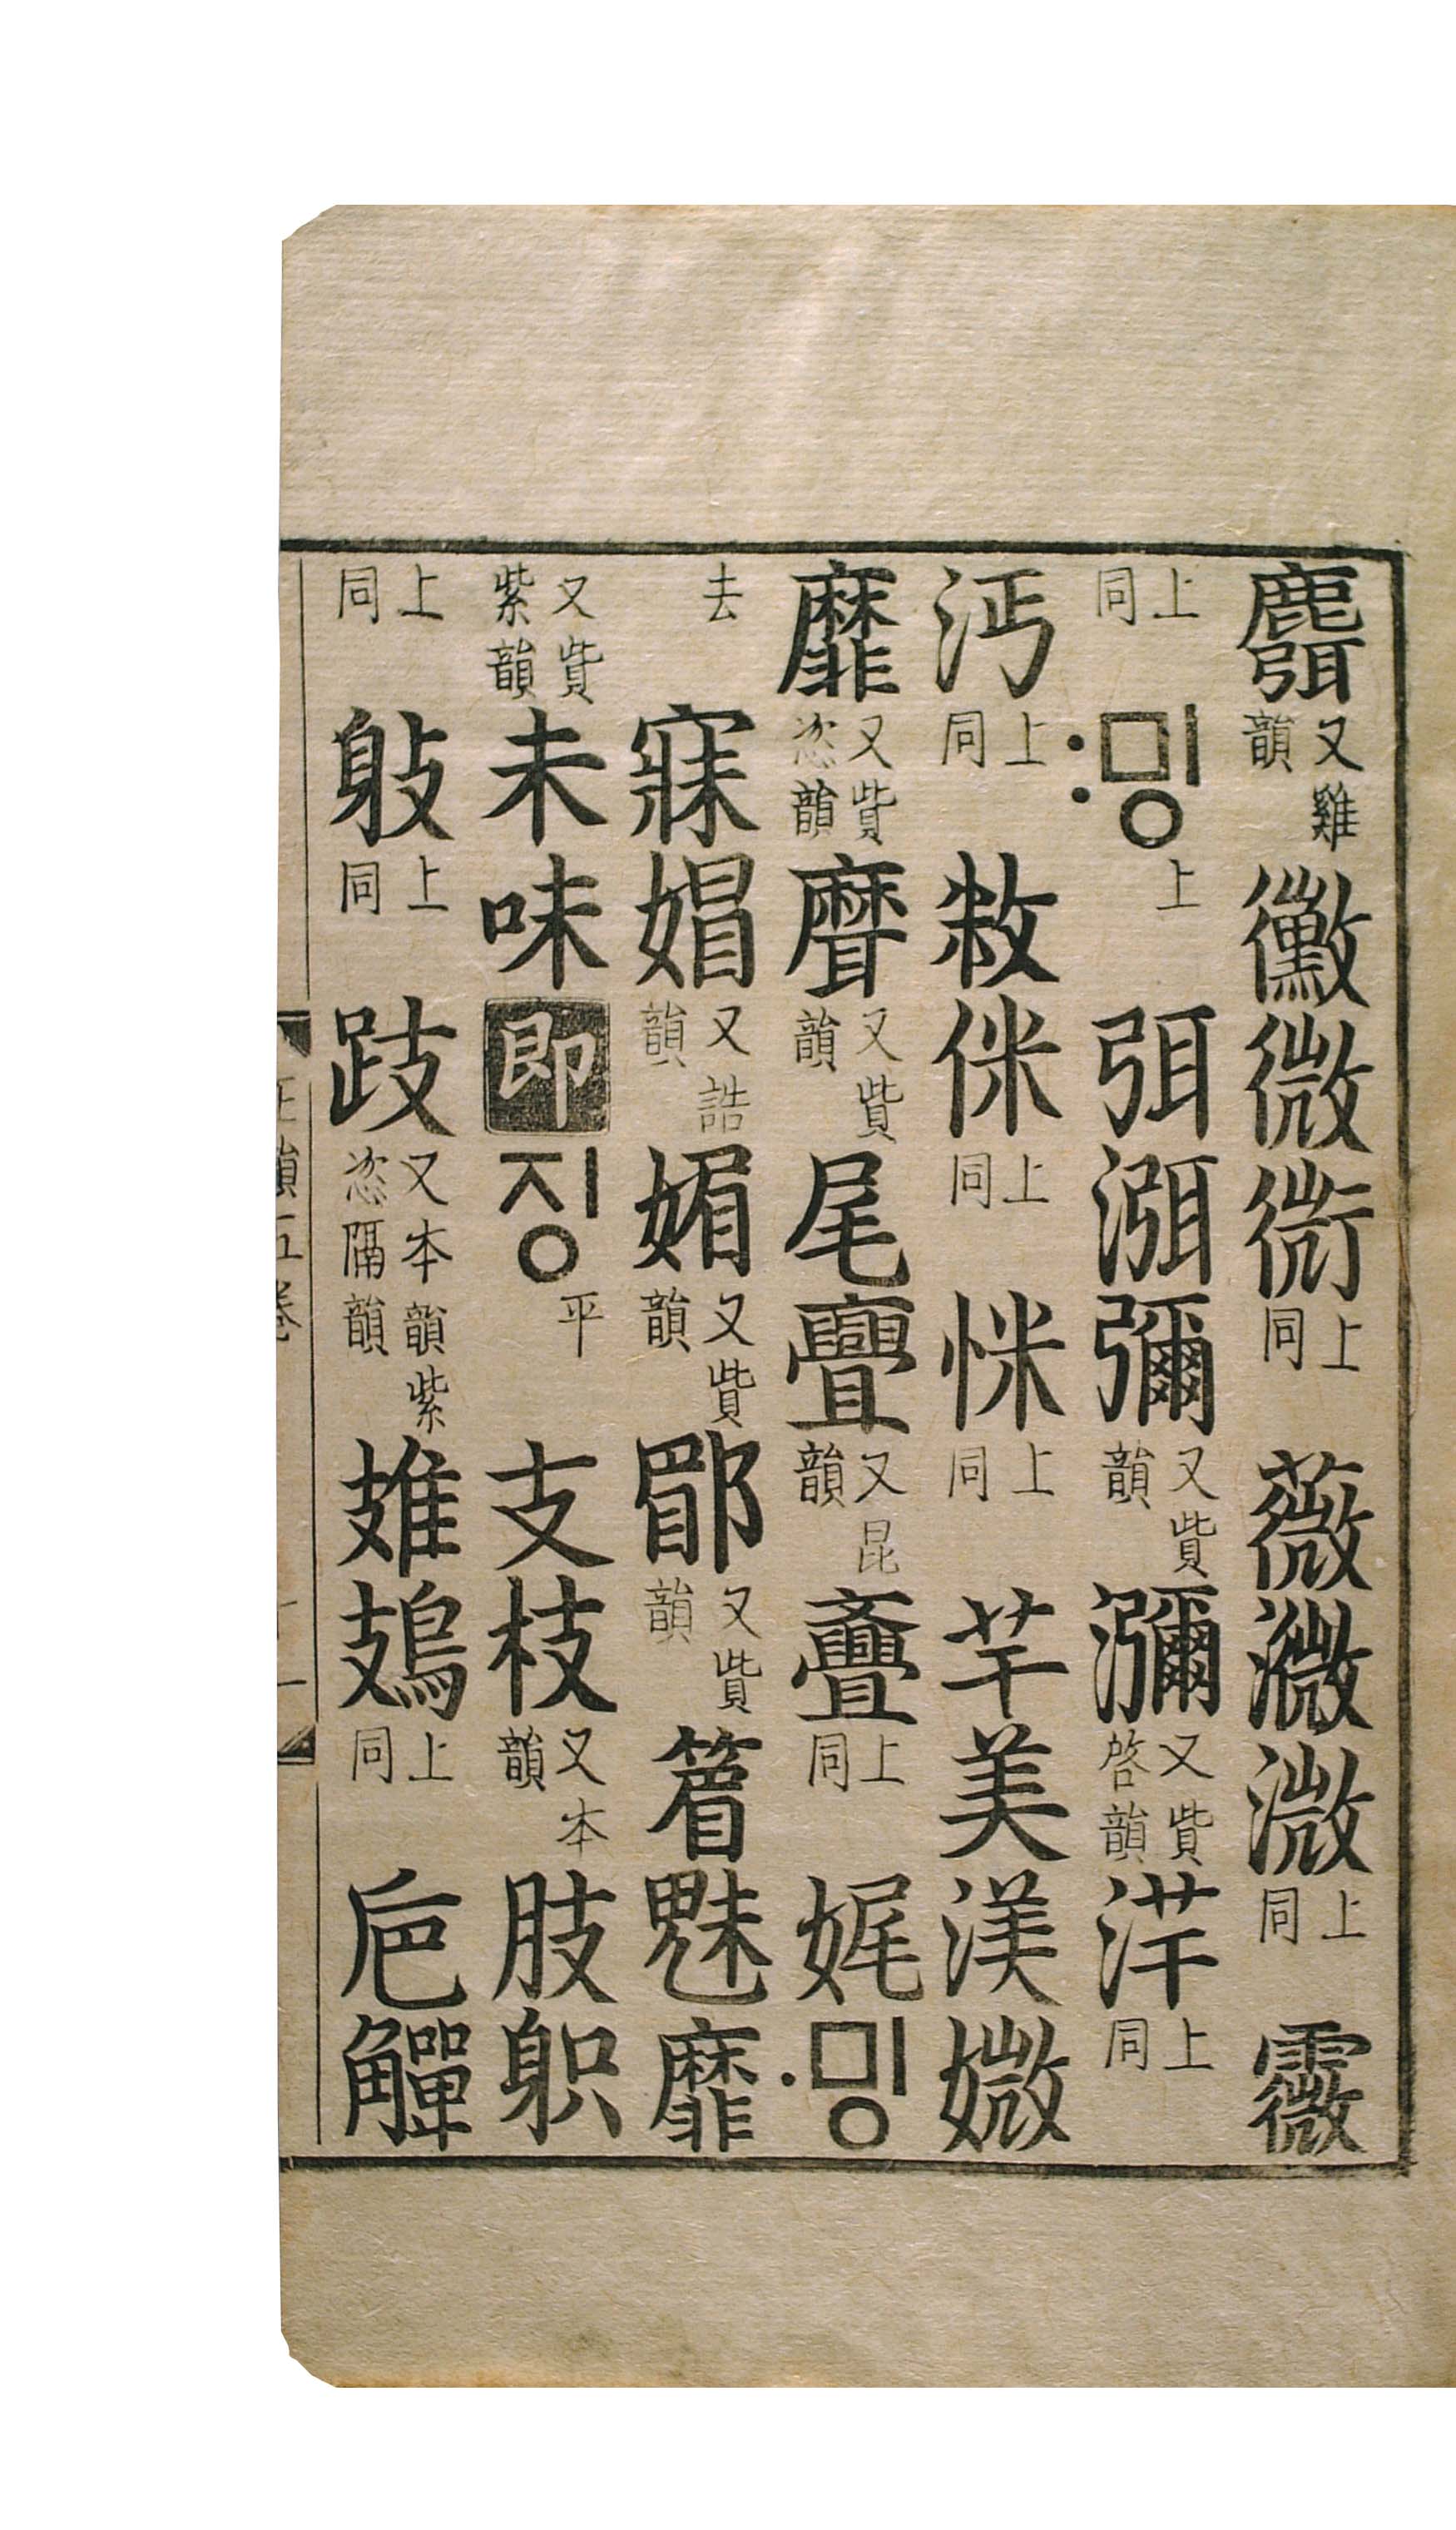 麛又雞韻黴微上同薇溦上同
上同:ᄆᆡᆼ上弭渳彌又貲韻瀰又貲啓韻上同
沔上同敉侎上同上同芈美渼媺
靡又貲恣韻又貲韻尾亹又昆韻斖上同娓·밍
去寐媢又誥韻媚又貲韻郿又貲韻篃魅靡
又貲紫韻未味即징平支枝又本韻肢
上同上同跂又本韻紫恣隔韻鳷上同卮觶